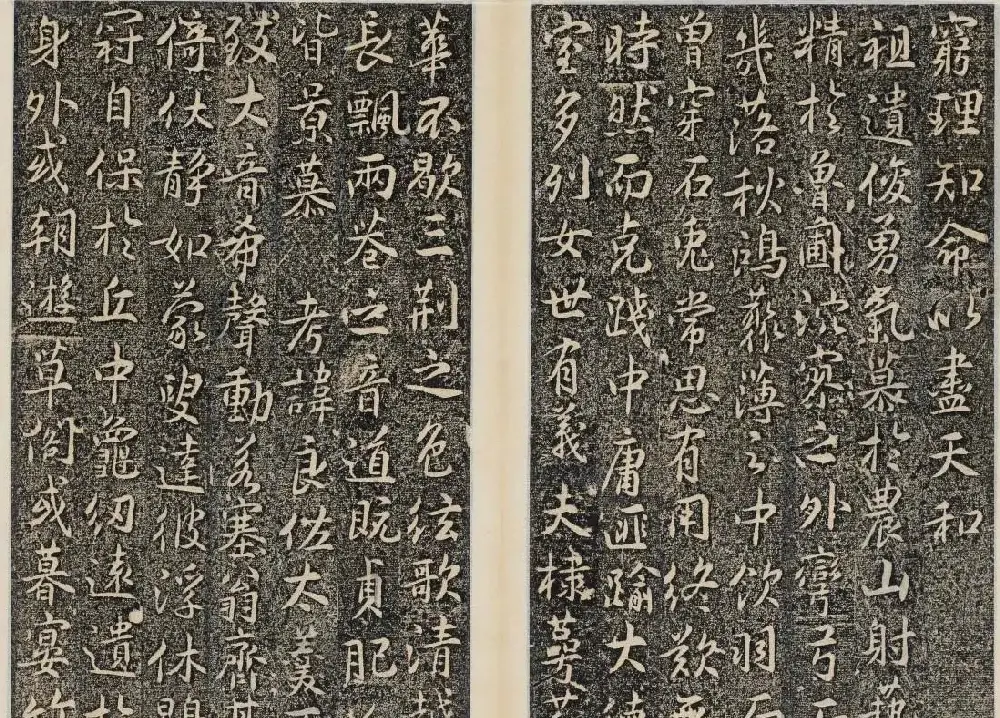 窮理知命以盡天和
祖遺俊勇氣慕於農山射
精於魯圃沈寂之外彎弓
幾落秋鴻蘋薄之中飲羽
曾穿石兕常思有用終歎無
時然而克踐中庸匪踰大德
室多列女世有義夫棣萼
華不歇三荊之色絃歌清越
長飄兩巷之音道既貞肥
皆景慕 考諱良佐太羹
致大音希聲動若塞翁齊其
倚伏靜如蒙叟達彼浮休
冠自保於丘中龜紉遠遺於
身外或朝遊草閣或暮宴竹